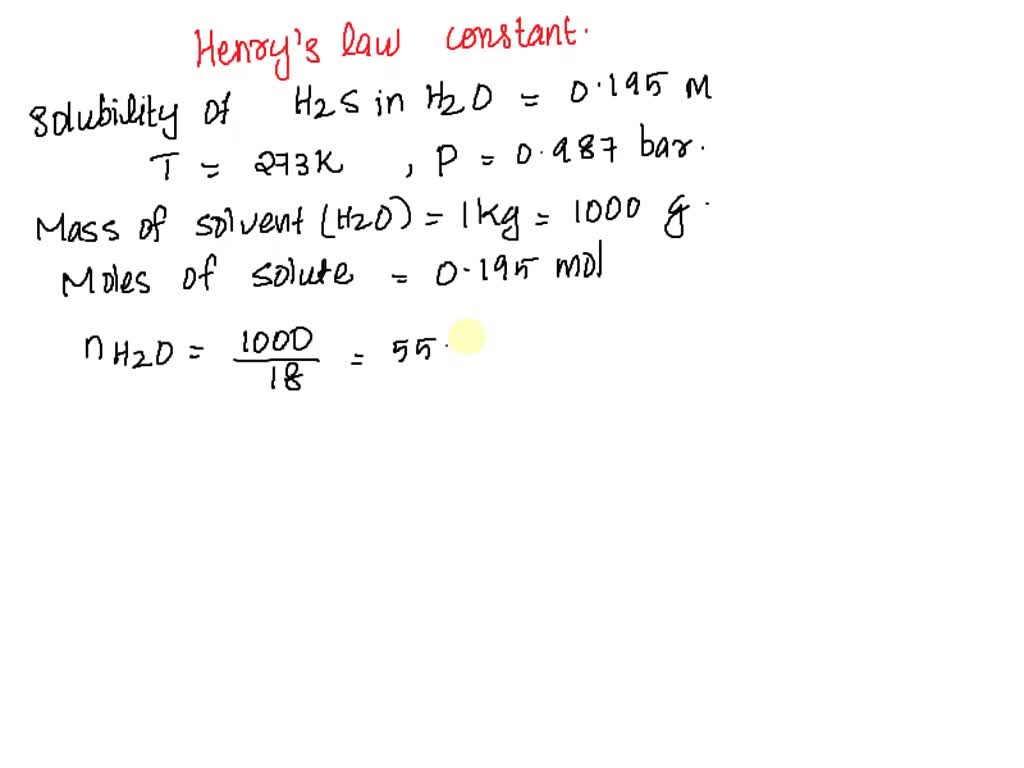 Henry's law constant.
Solubility of H2S in H2O = 0.195 M
T = 273K , P = 0.987 bar.
Mass of solvent (H2O) = 1kg = 1000 g.
Moles of solute = 0.195 mol
nH2O = 1000/18 = 55.